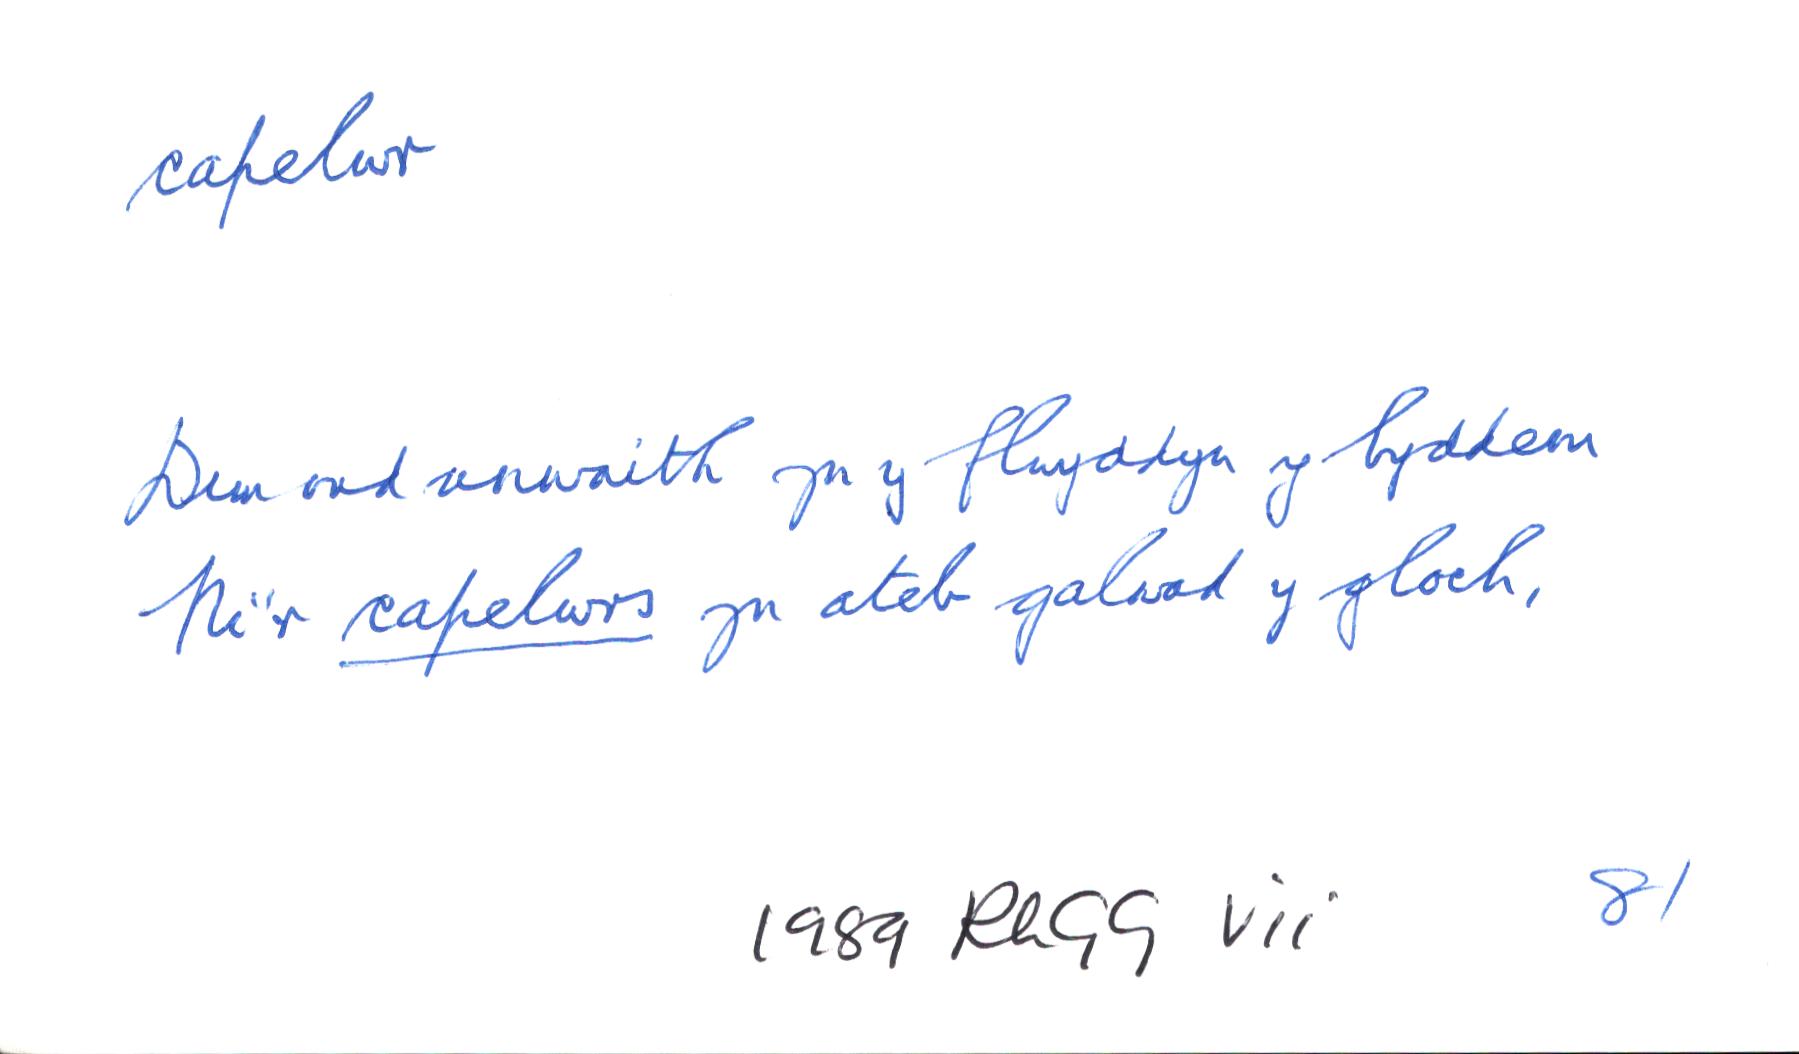 capelwr
Dim ond unwaith yn y flwyddyn y byddem
Ni'r capelwrs yn ateb galwad y gloch,
1989 RhGG vii 81